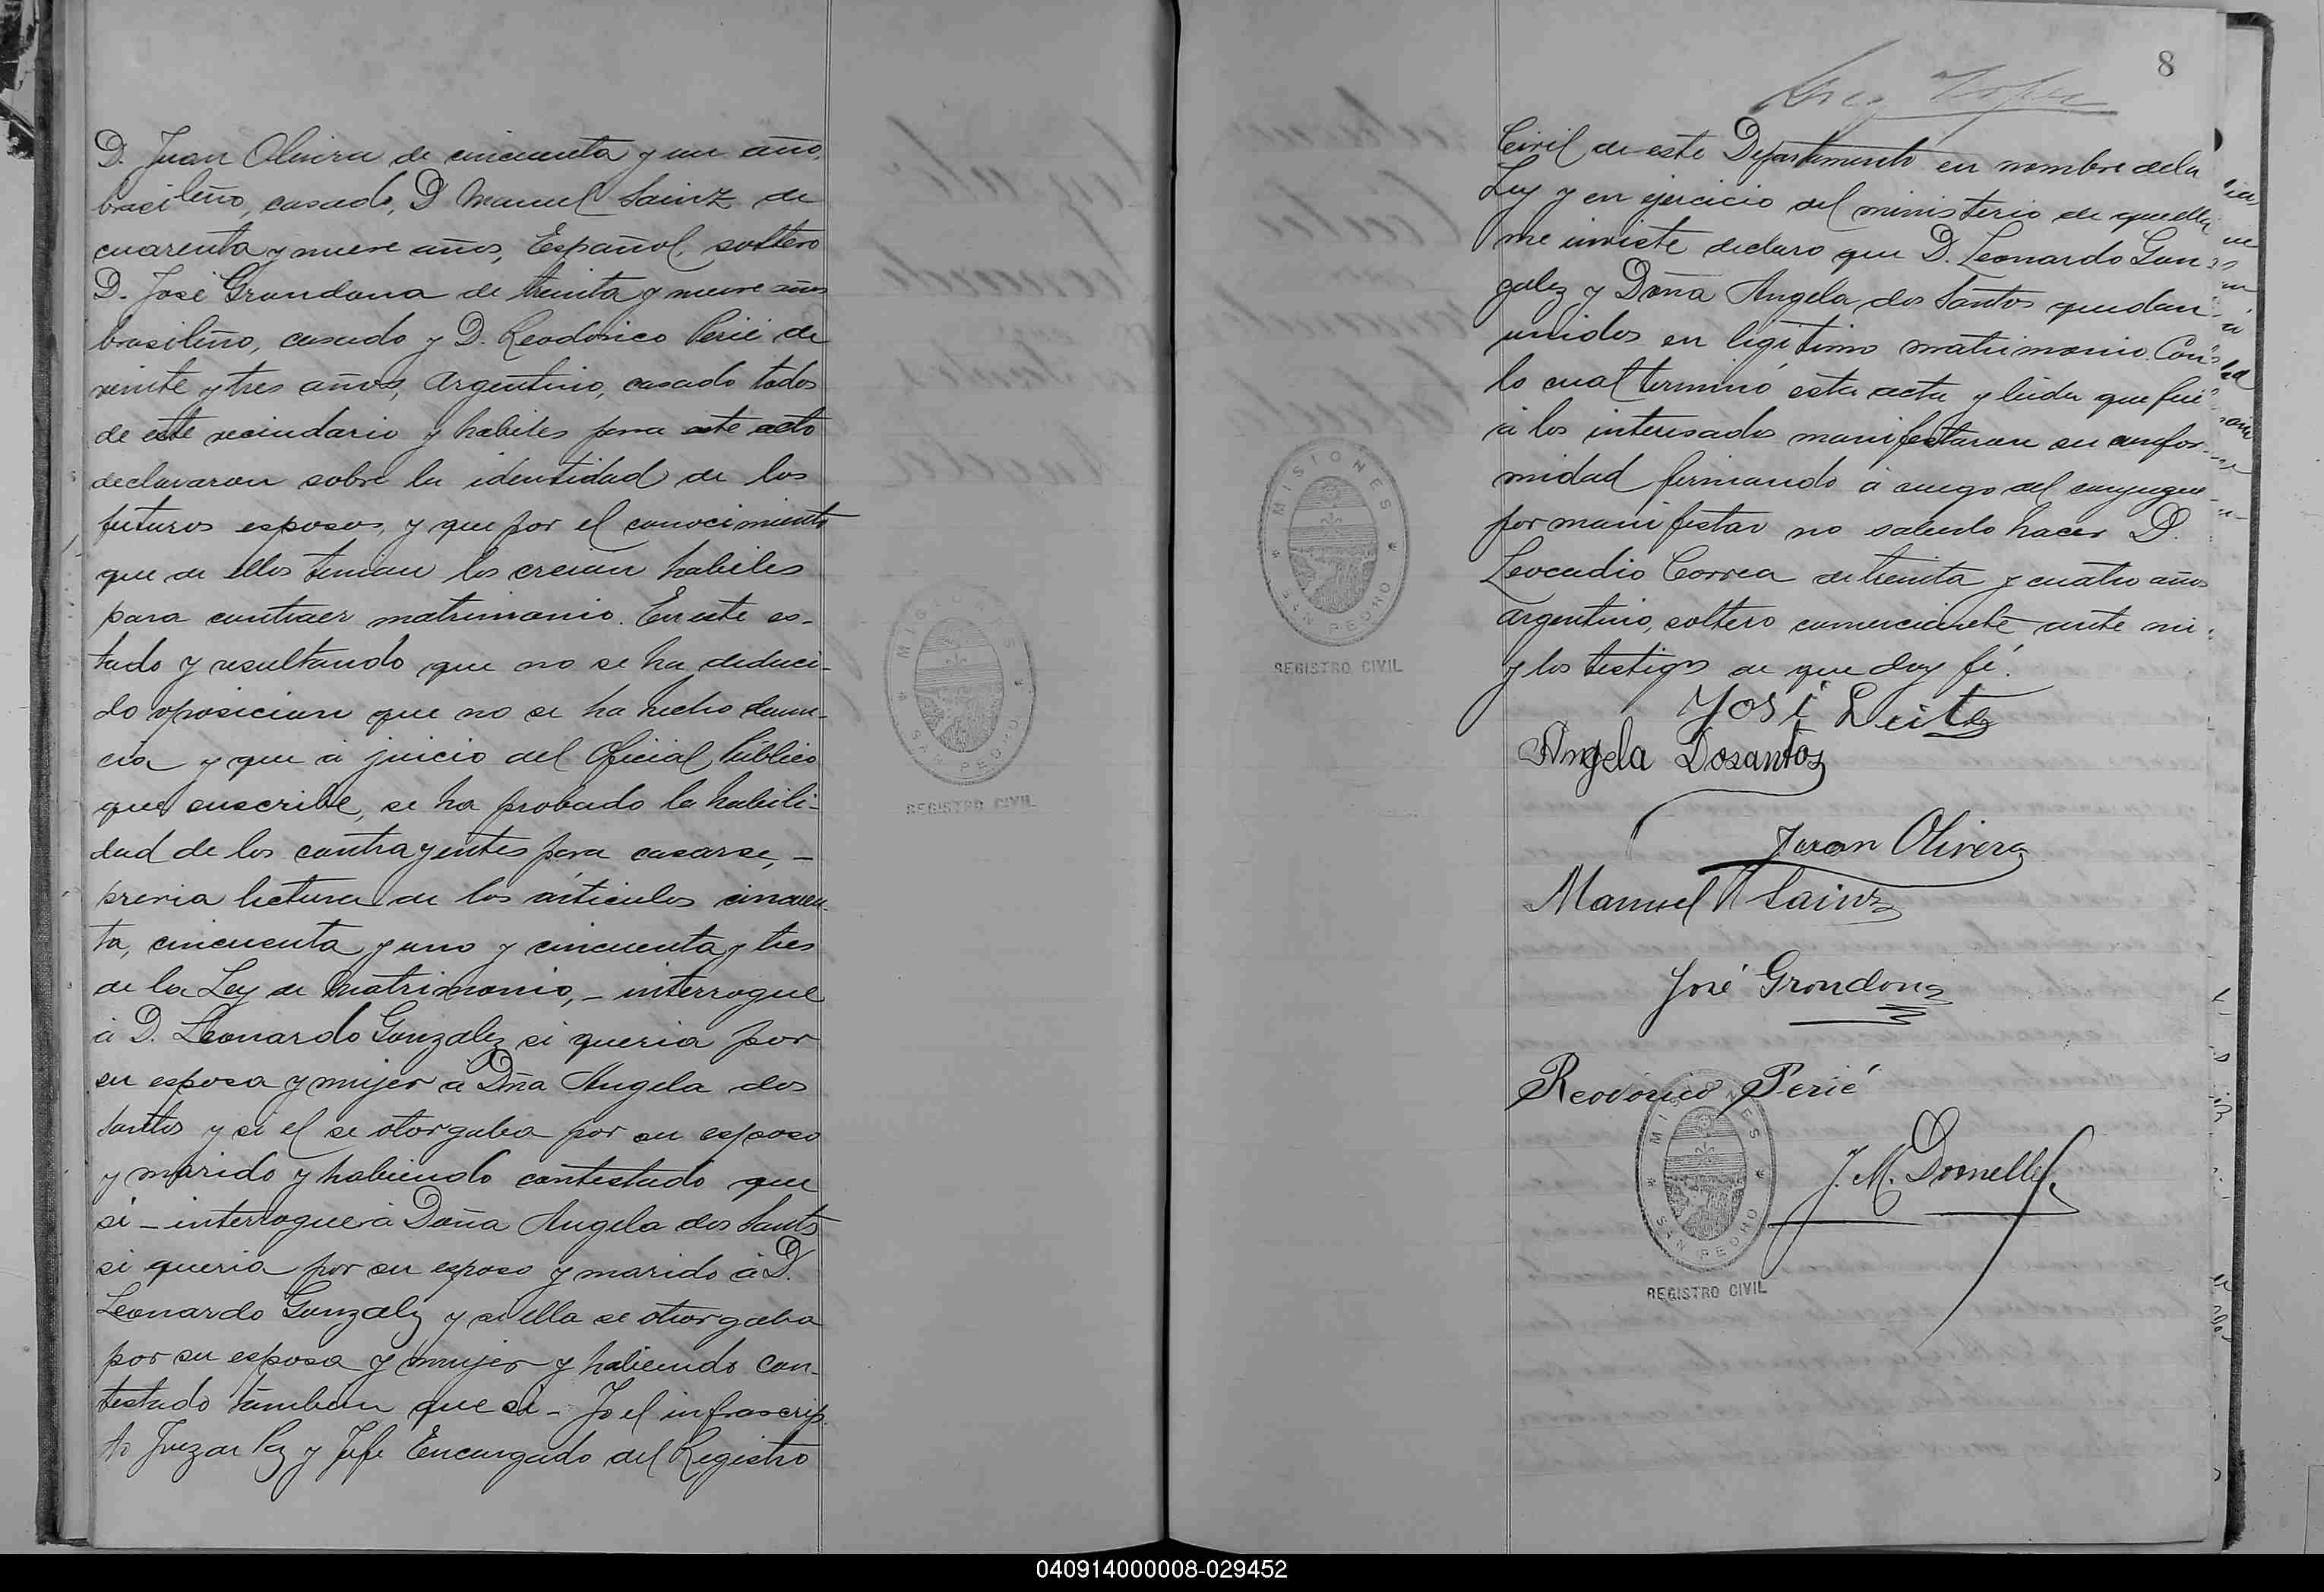 D. Juan Olivera de cincuenta y un año,
brasileño, casado, D Manuel Sainz de
cuarenta y nueve años, Español, soltero
D. José Grondona de treinta y nueve años
brasileño, casado y D. Reodorico Perié de
veinte y tres años, argentino, casado todos
de este vecindario y habiles para este acto
declararon sobre la identidad de los
futuros esposos, y que por el conocimiento
que de ellos tenian los creian habiles
para contraer matrimonio. En este es-
tado y resultando que no se ha deduci-
do oposicion que no se ha hecho denun-
cia y que á juicio del Oficial Público
que suscribe, se ha probado la habili-
dad de los contrayentes para casarse, -
previa lectura de los artículos cincuen-
ta, cincuenta y uno y cincuenta y tres
de la Ley de Matrimonio, - interrogué
á D. Leonardo Gonzalez si queria por
su esposa y mujer a Dña Angela dos
Santos y si el se otorgaba por su esposo
y marido y habiendo contestado que
si - interrogué á Doña Angela dos Santos
si queria por su esposo y marido á D.
Leonardo Gonzalez y si ella se otorgaba
por su esposa y mujer y habiendo con-
testado tambien que si - Yo el infrascrip-
to Juez de Paz y Jefe Encargado del Registro
MISIONES
SAN PEDRO
REGISTRO CIVIL
8
Civil de este Departamento en nombre de la
Ley y en ejercicio del ministerio de que ella
me inviste declaro que D. Leonardo Gon-
zalez y Doña Angela dos Santos quedan
unidos en legítimo matrimonio. Con
lo cual terminó esta acta y leida que fué
á los interesados manifestaron su confor-
midad firmando á ruego del conyugue
por manifestar no saberlo hacer D.
Leocadio Correa de treinta y cuatro años
argentino, soltero comerciante ante mi
y los testigos de que doy fé.
MISIONES
SAN PEDRO
REGISTRO CIVIL
José Leite
Angela Dosantos
Juan Olivera
Manuel Sainz
José Grondona
Reodorico Perié
J. M. Dornelles
MISIONES
SAN PEDRO
REGISTRO CIVIL
040914000008-029452